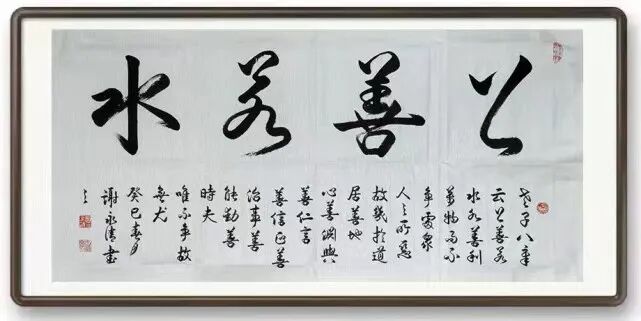 上善若水
老子八章
云上善若
水水善利
萬物而不
争處衆
人之所惡
故幾於道
居善地
心善淵與
善仁言
善信正善
治事善
能動善
時夫
唯不争故
無尤
癸巳春月
謝永清書